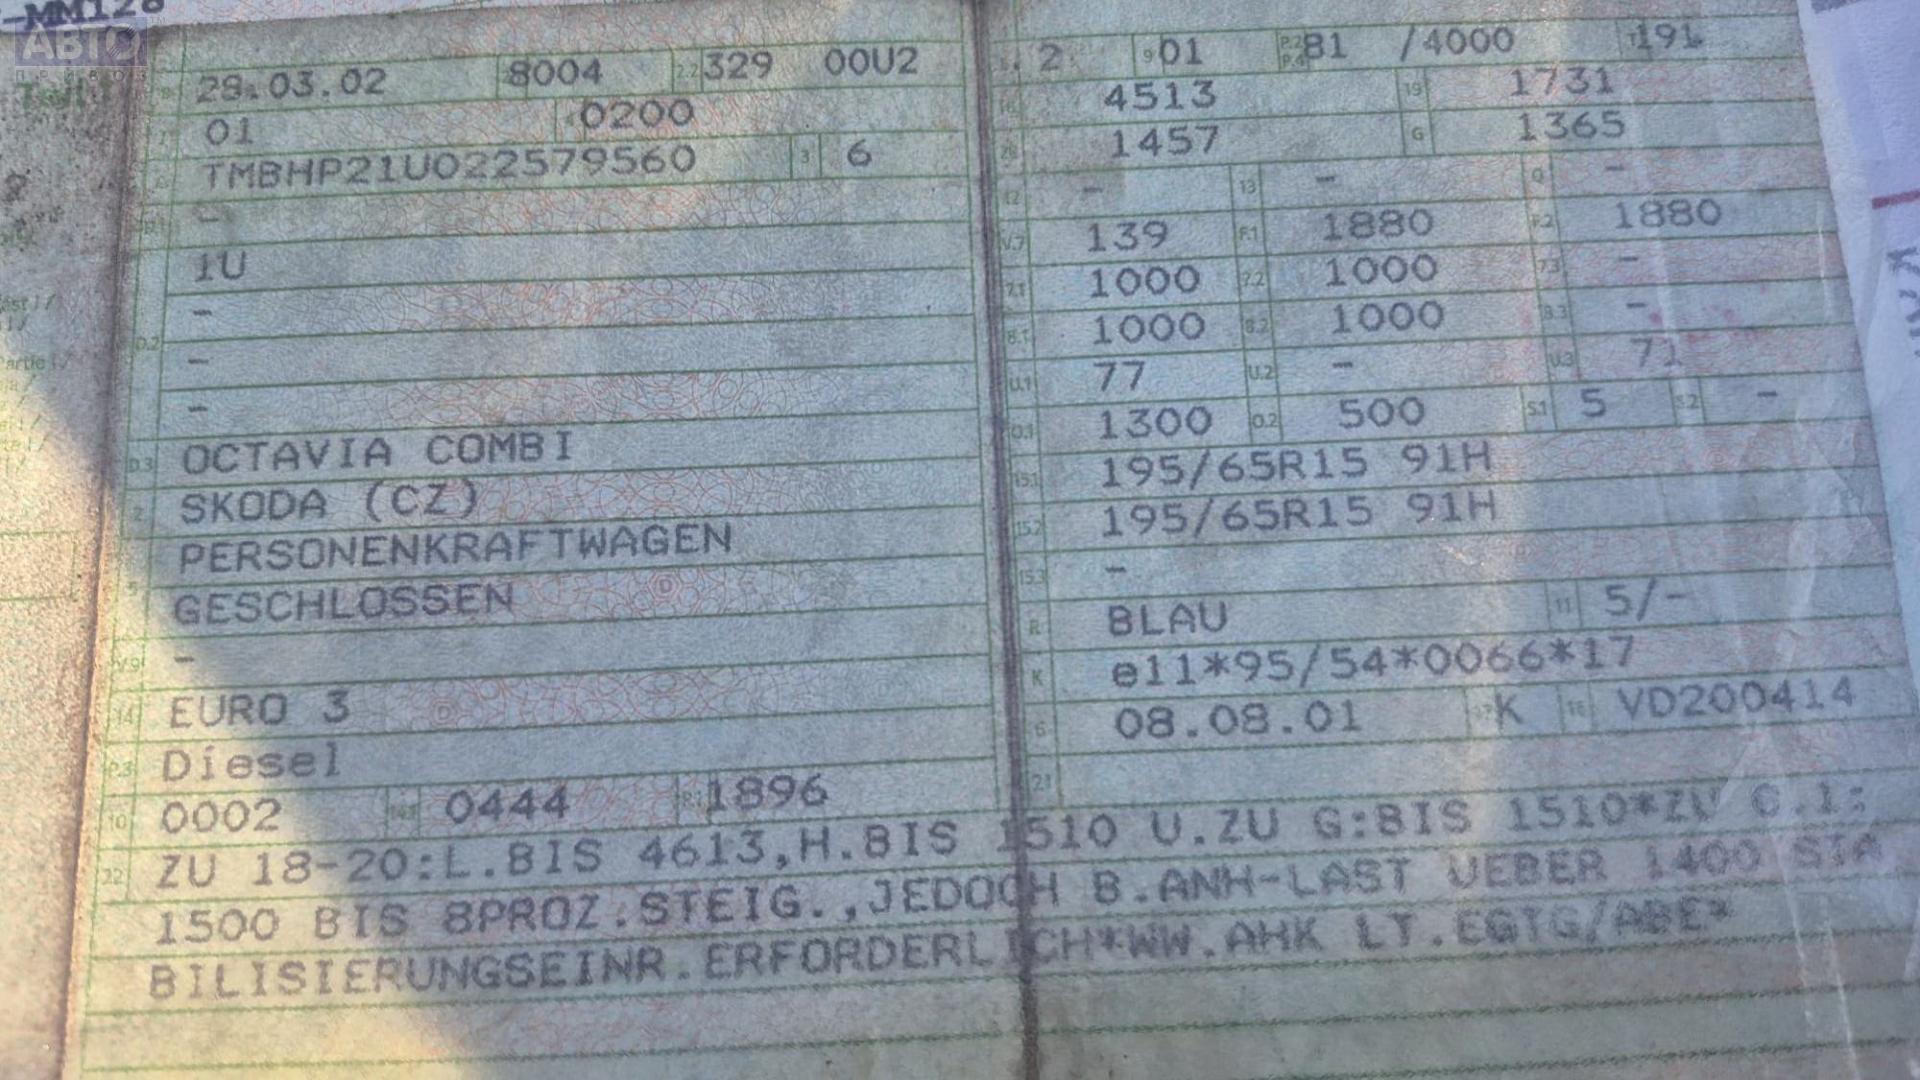 -MM128
АВТО
ПРИВОЗ
Teil I
28.03.02 8004 2.2 329 00U2
01 0200
TMBHP21U022579560 3 6
-
1U
-
D.2 -
-
D.3 OCTAVIA COMBI
2 SKODA (CZ)
PERSONENKRAFTWAGEN
GESCHLOSSEN
V.9 -
14 EURO 3
P.3 Diesel
10 0002 14.1 0444 P.1 1896
2 9 01 P.2 P.4 81 /4000 191
18 4513 19 1731
20 1457 G 1365
12 - 13 - Q -
V.7 139 F.1 1880 F.2 1880
7.1 1000 7.2 1000 7.3 -
8.1 1000 8.2 1000 8.3 -
U.1 77 U.2 - U.3 72
O.1 1300 O.2 500 S.1 5 S.2 -
15.1 195/65R15 91H
15.2 195/65R15 91H
15.3 -
R BLAU 11 5/-
K e11*95/54*0066*17
6 08.08.01 17 K 16 VD200414
21
22 ZU 18-20:L.BIS 4613,H.BIS 1510 U.ZU G:BIS 1510*ZU O.1:
1500 BIS 8PROZ.STEIG.,JEDOCH B.ANH-LAST UEBER 1400 STA
BILISIERUNGSEINR.ERFORDERLICH*WW.AHK LT.EGTG/ABE*